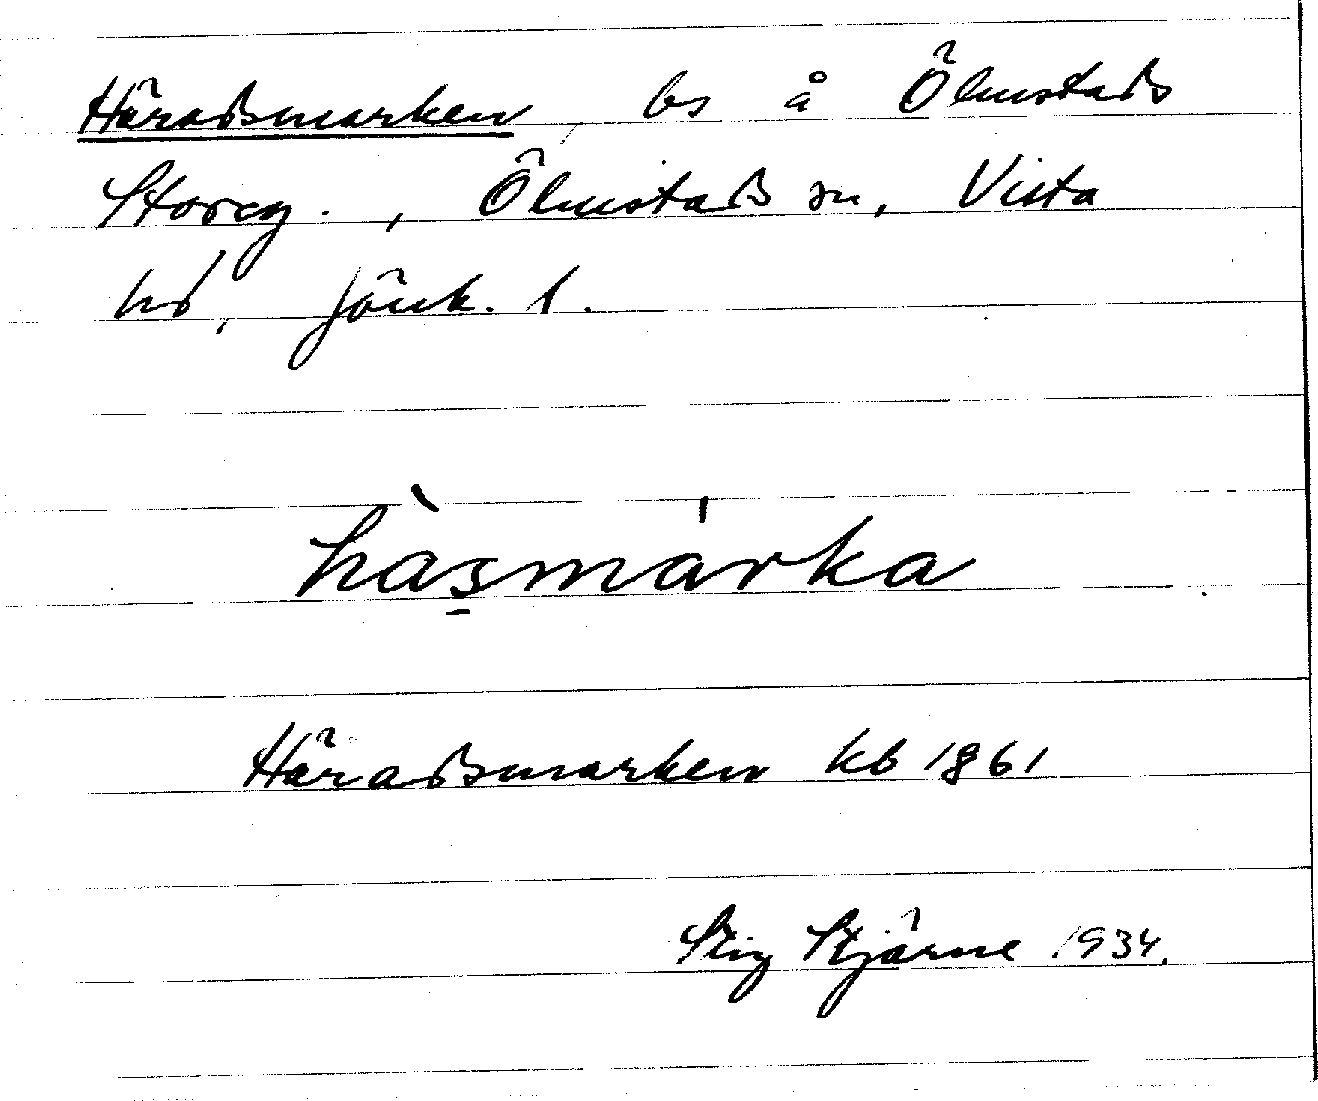 Häradsmarken, bs å Ölmstads
Storeg., Ölmstads sn, Vista
hd, Jönk. l.
hàs̱márka
Häradsmarken kb 1861
Stig Stjärne 1934.